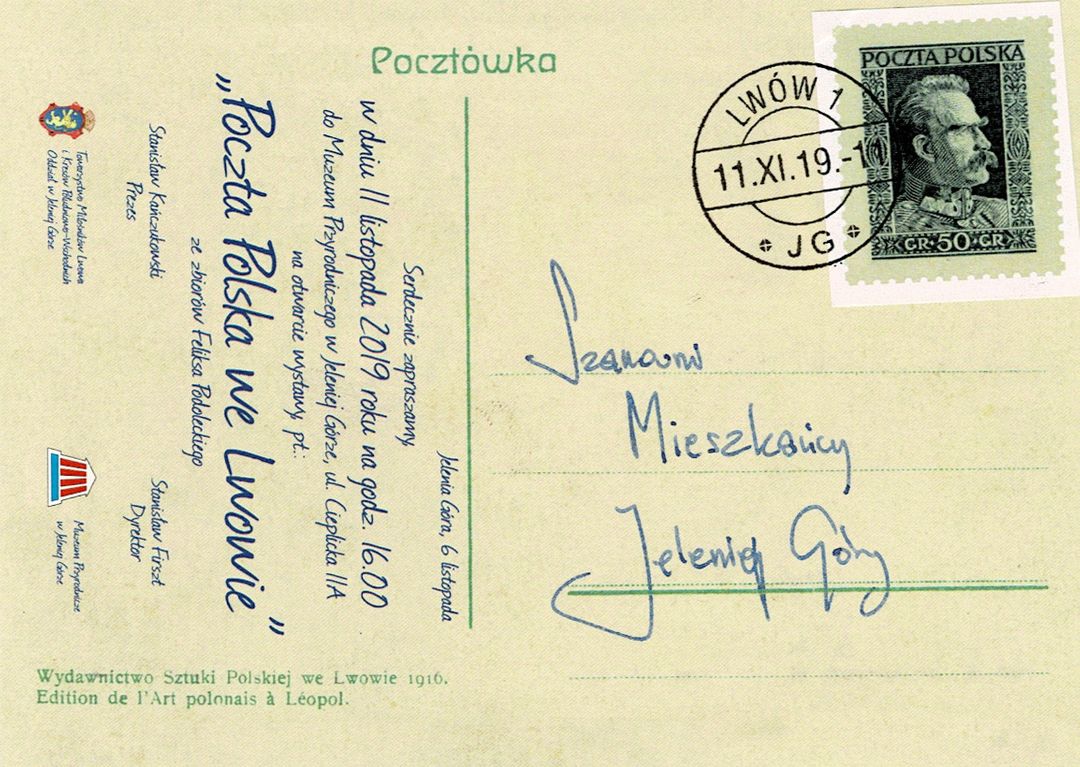 Pocztówka
POCZTA POLSKA
GR·50·GR
LWÓW 1
11.XI.19.-11
JG
Jelenia Góra, 6 listopada
Serdecznie zapraszamy
w dniu 11 listopada 2019 roku na godz. 16.00
do Muzeum Przyrodniczego w Jeleniej Górze, ul. Cieplicka 11A
na otwarcie wystawy, pt.:
„Poczta Polska we Lwowie”
ze zbiorów Feliksa Podoleckiego
Stanisław Kańczukowski
Prezes
Stanisław Firszt
Dyrektor
Towarzystwo Miłośników Lwowa
i Kresów Południowo-Wschodnich
Oddział w Jeleniej Górze
Muzeum Przyrodnicze
w Jeleniej Górze
Szanowni
Mieszkańcy
Jeleniej Góry
Wydawnictwo Sztuki Polskiej we Lwowie 1916.
Edition de l'Art polonais à Léopol.